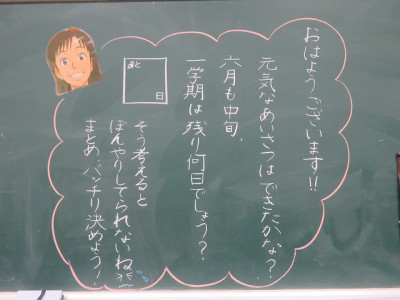 おはようございます!!
元気なあいさつはできたかな?
六月も中旬、
一学期は残り何日でしょう?
あと
日
そう考えると
ぼんやりしてられないね
まとめ、バッチリ決めよう!